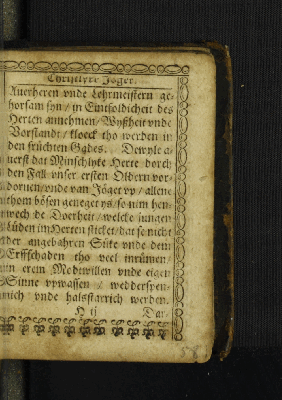 Christlyker Jöget.
Auerheren vnde Lehrmeistern ge-
horsam syn / in Eintfoldicheit des
Herten annehmen / Wyßheit vnde
Vorstandt / kloeck tho werden in
den früchten Gades. Dewyle a-
uerst dat Minschlyke Herte dorch
den Fall vnser ersten Oldern vor-
doruen / vnde van Jöget vp / allene
thom bösen geneget ys / so nim hen-
wech de Dorheit / welke jungen
Lüden im Herten sticket / dat se nicht
der angebahren Süke vnde dem
Erffschaden tho veel inrümen /
erem Modtwillen vnde eigen
Sinne vpwassen / wedderspen-
nich vnde halsstarrich werden.
H ij Dar-